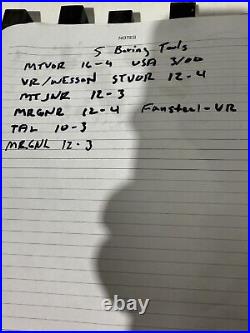 NOTES
5 Boring Tools
MTVOR 16-4 USA 3/00
VR/WESSON STVOR 12-4
MTJNR 12-3
MRGNR 12-4 Fansteel-VR
TAL 10-3
MRGNL 12-3